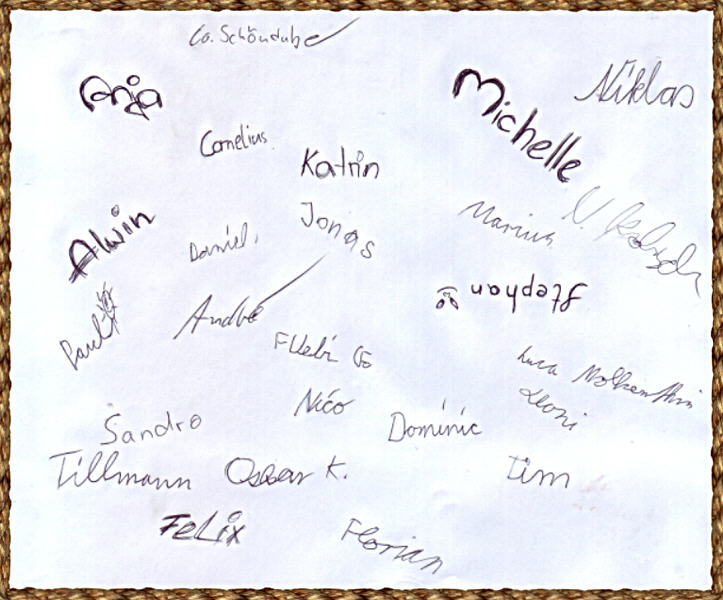 Co. Schöndube
Anja
Michelle
Niklas
Cornelius
Katrin
Alwin
Daniel
Jonas
Marius
N.
Stephan
Paul
André
Nico
Luca Molkenthin
Leoni
Sandro
Dominic
Tillmann
Oskar K.
Tim
Felix
Florian